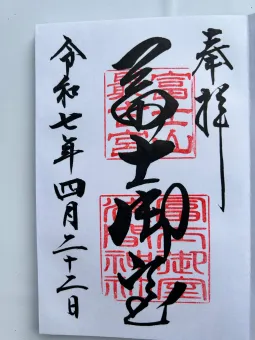 奉拝
冨士御室
富士山
最古宮
冨士御室
浅間神社
令和七年四月二十二日